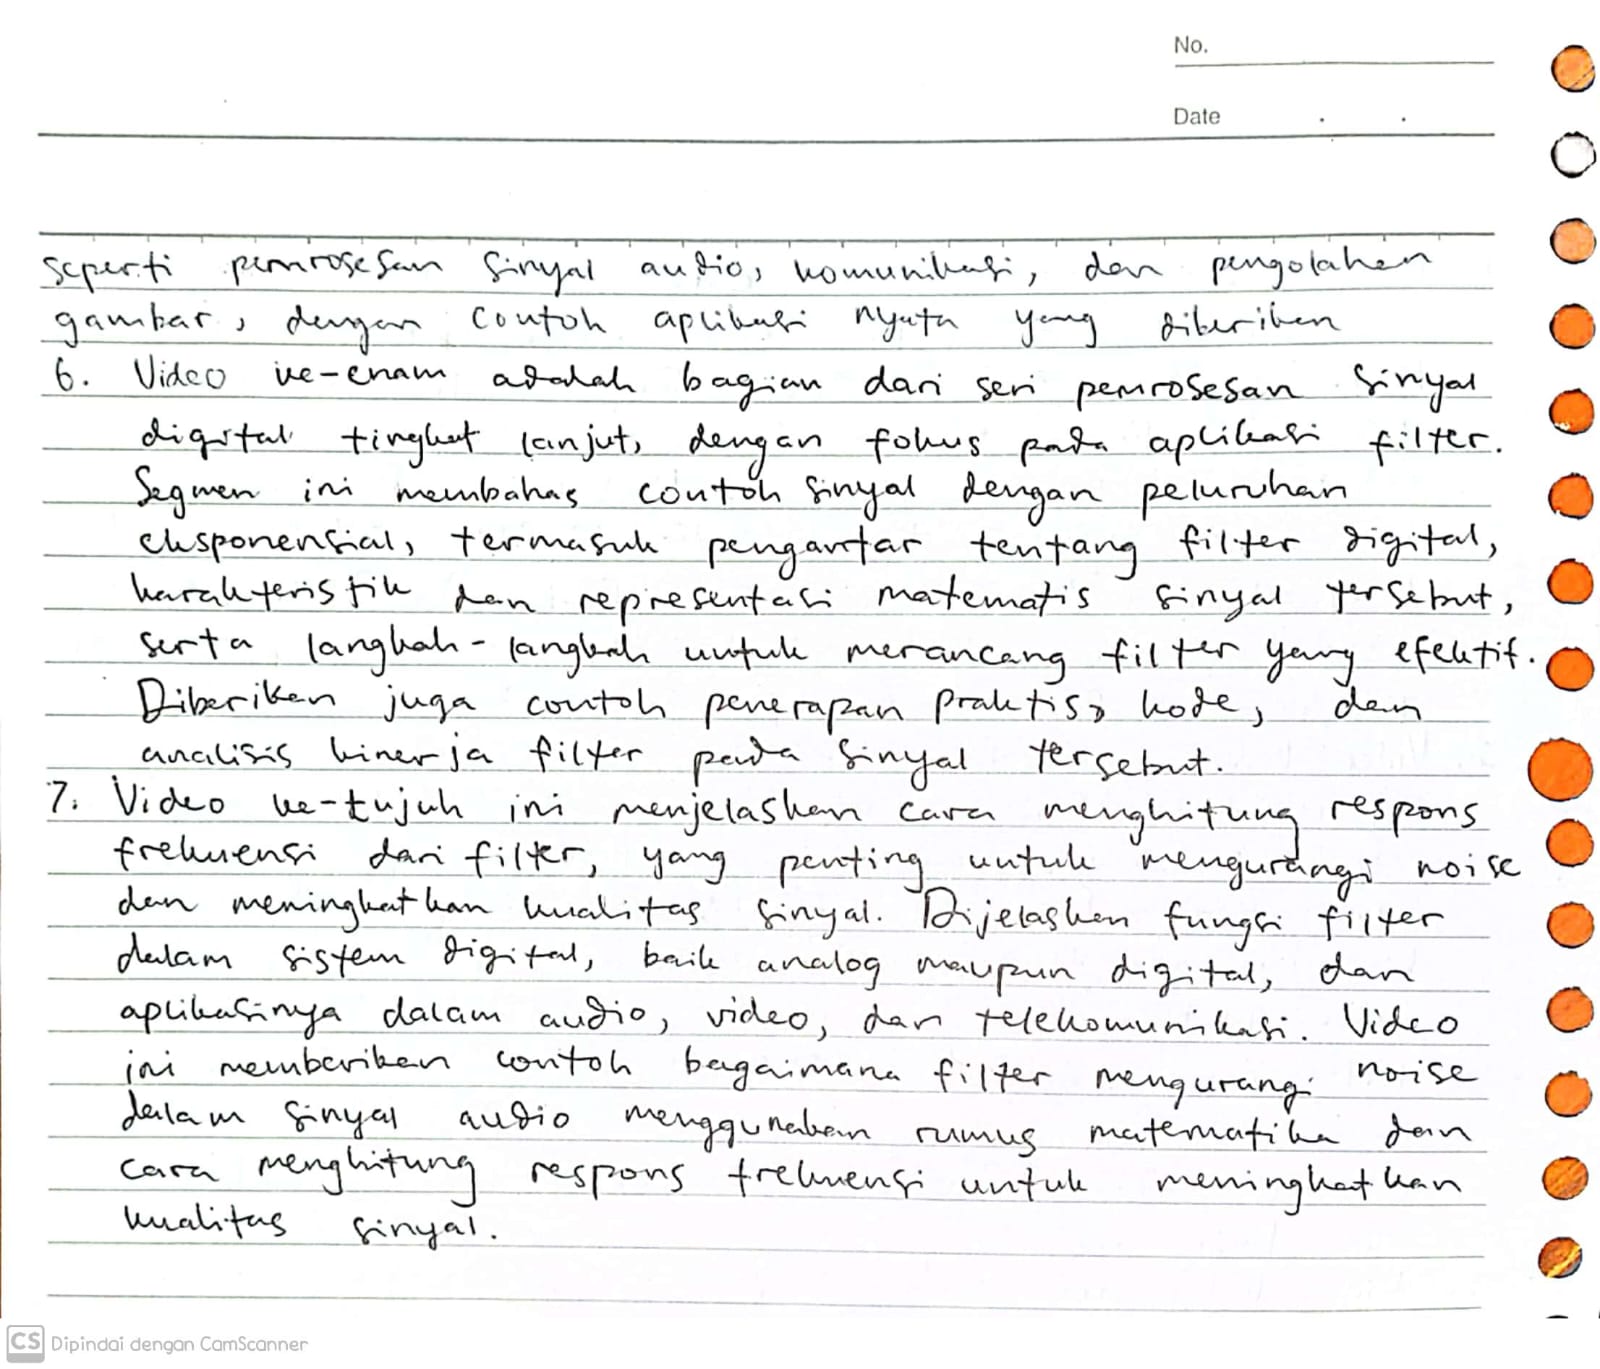 No.
Date . .
seperti pemrosesan sinyal audio, komunikasi, dan pengolahan
gambar, dengan contoh aplikasi nyata yang diberikan
6. Video ke-enam adalah bagian dari seri pemrosesan sinyal
digital tingkat lanjut, dengan fokus pada aplikasi filter.
Segmen ini membahas contoh sinyal dengan peluruhan
eksponensial, termasuk pengantar tentang filter digital,
karakteristik dan representasi matematis sinyal tersebut,
serta langkah-langkah untuk merancang filter yang efektif.
Diberikan juga contoh penerapan praktis, kode, dan
analisis kinerja filter pada sinyal tersebut.
7. Video ke-tujuh ini menjelaskan cara menghitung respons
frekuensi dari filter, yang penting untuk mengurangi noise
dan meningkatkan kualitas sinyal. Dijelaskan fungsi filter
dalam sistem digital, baik analog maupun digital, dan
aplikasinya dalam audio, video, dan telekomunikasi. Video
ini memberikan contoh bagaimana filter mengurangi noise
dalam sinyal audio menggunakan rumus matematika dan
cara menghitung respons frekuensi untuk meningkatkan
kualitas sinyal.
CS Dipindai dengan CamScanner